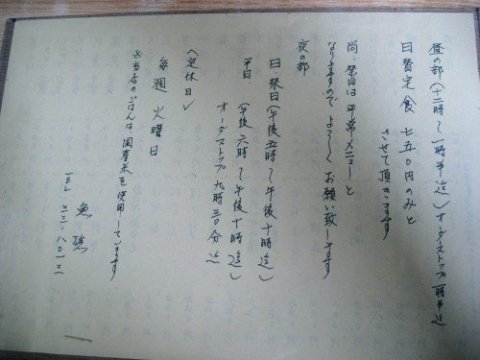 昼の部(十二時〜一時半迄)オーダーストップ一時半迄
日替定食 七五〇円のみと
させて頂きます
尚、祭日は平常メニューと
なりますので よろしくお願い致します
夜の部
日祭日(午後五時〜午後十時迄)
平日(午後六時〜午後十時迄)
オーダーストップ九時三〇分迄
〈定休日〉
毎週 火曜日
※当店のごはんは国産米を使用しています
魚
TEL 三三-八〇一三